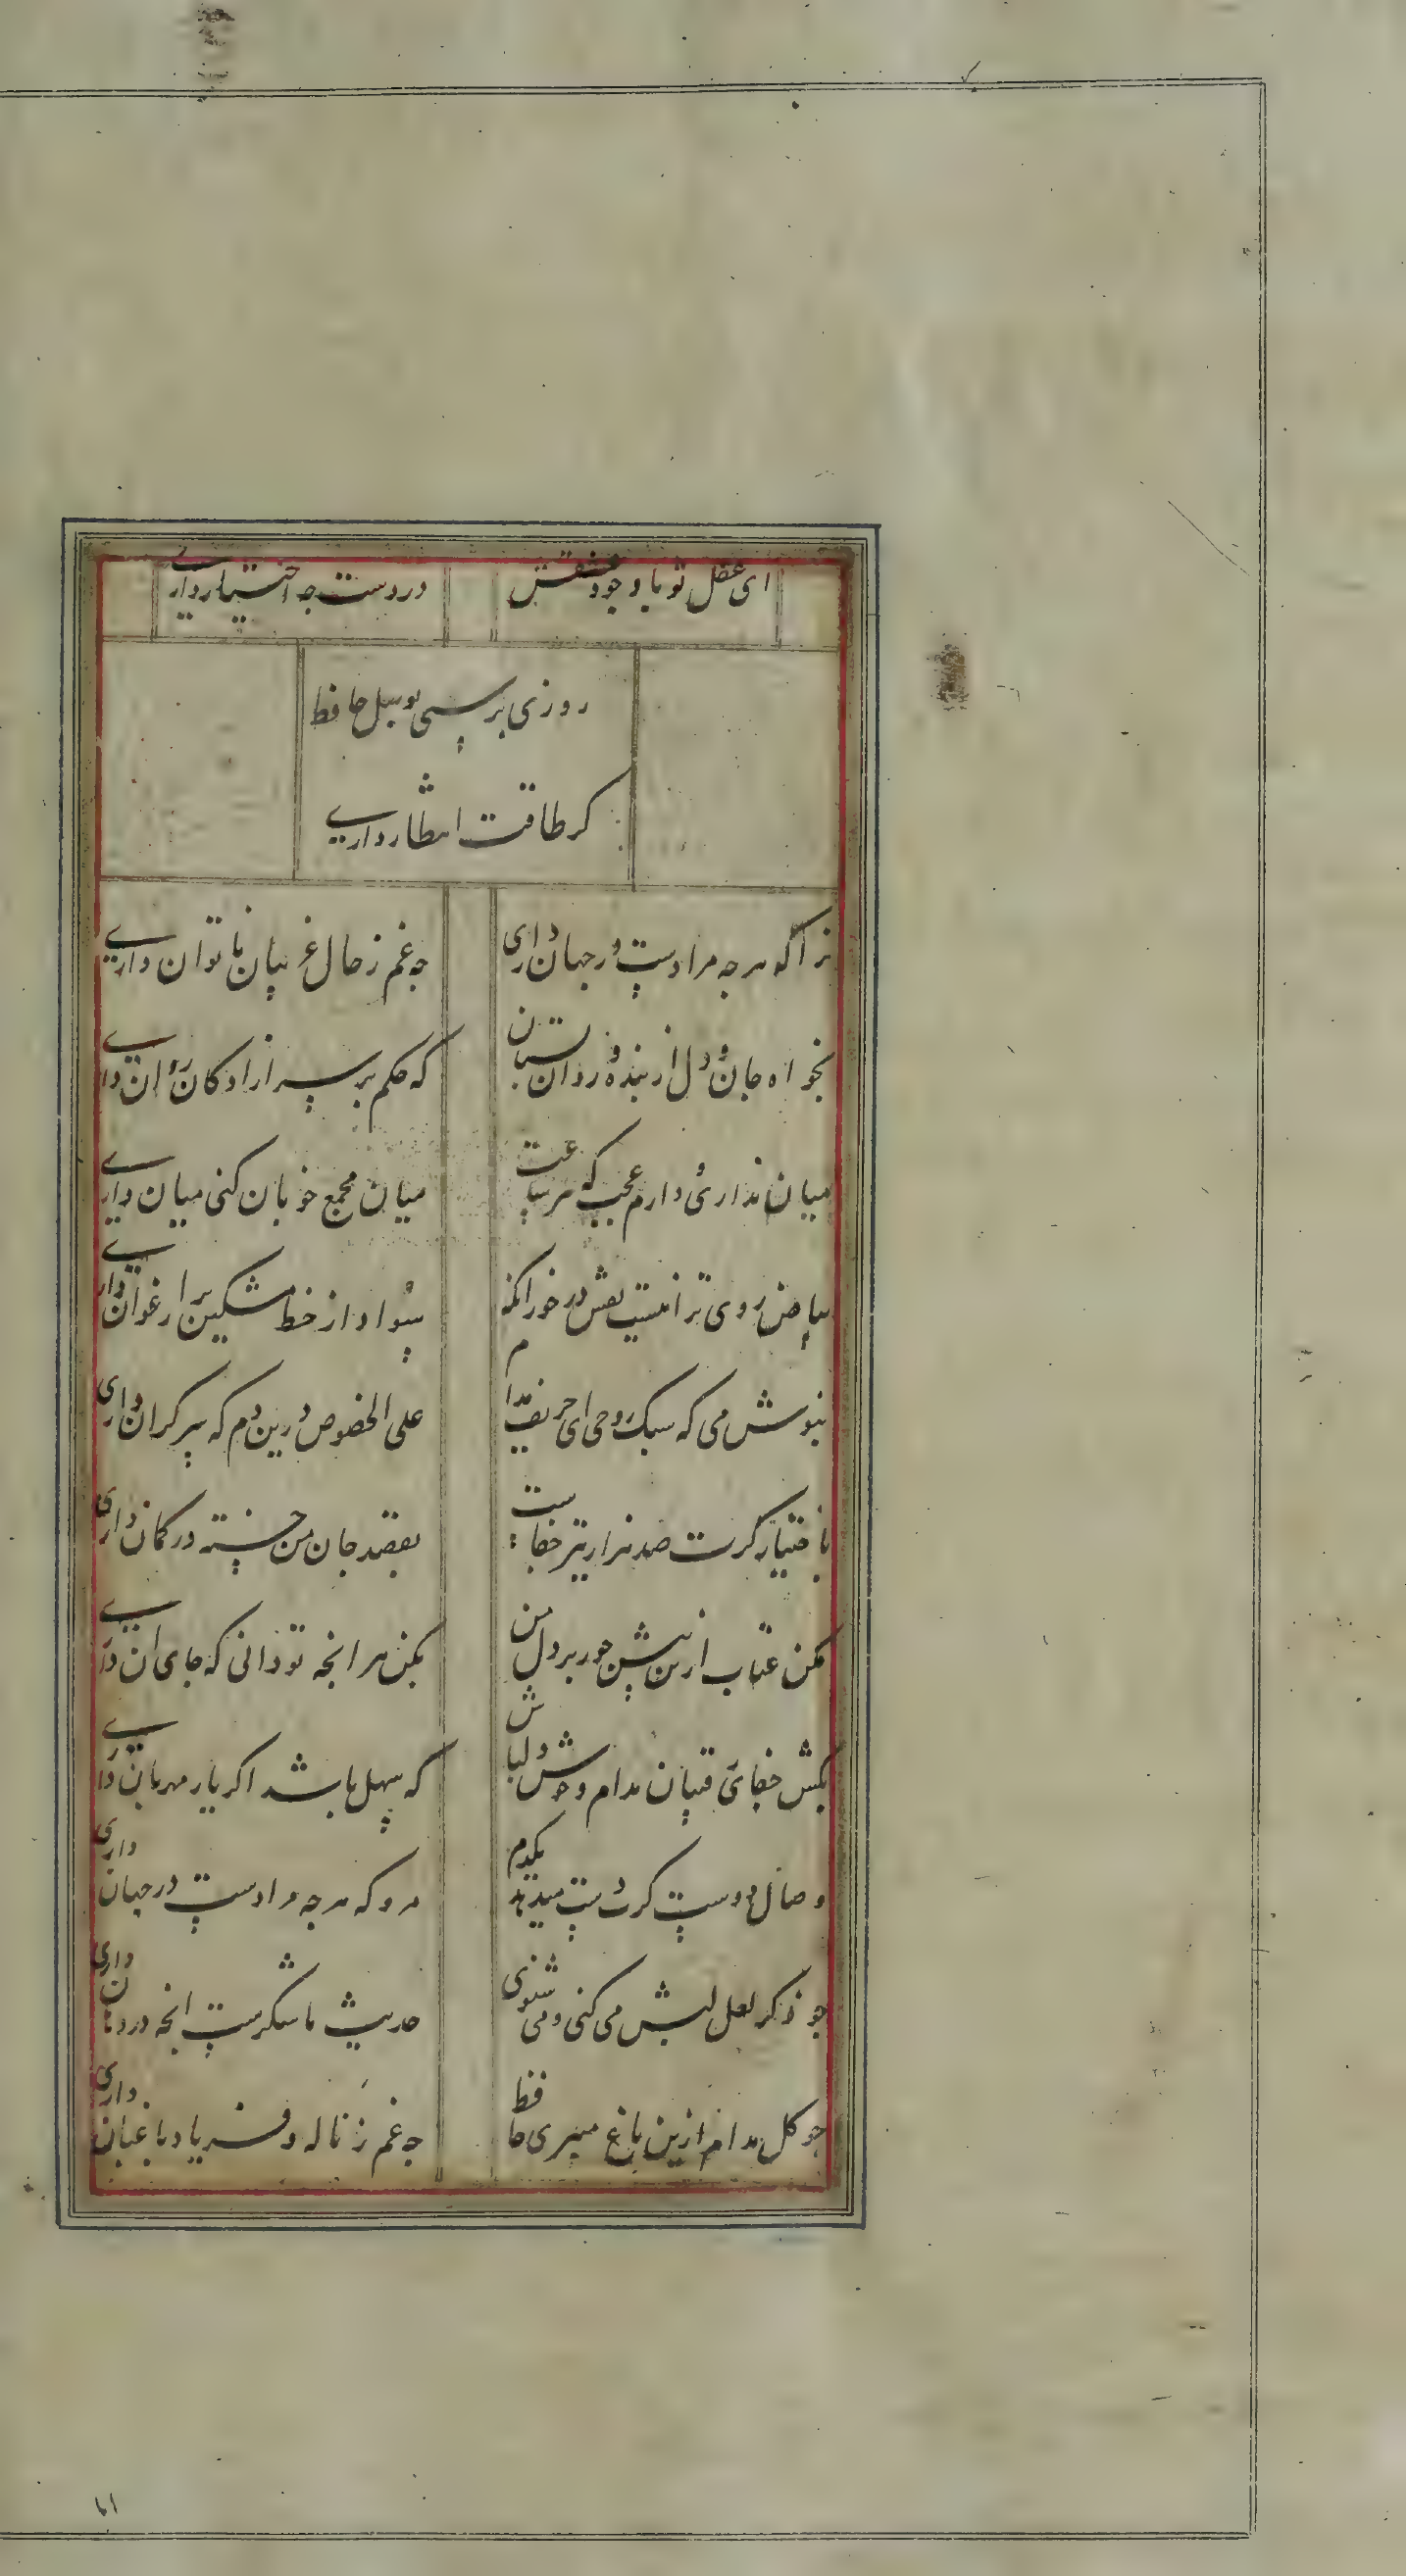 ای عقل تو با وجود عشقش در دست چه اختیار داری
روزی برسی بوصل حافظ
کر طاقت انتظار داری
ترا که هر چه مرادست در جهان داری چه غم ز حال غریبان ناتوان داری
بخواه جان و دل از بنده و روان بستان که حکم بر سر ازادکان روان داری
میان نداری و دارم عجب که هر ساعت میان مجمع خوبان کنی میان داری
بیاض روی ترا نیست نقش در خور انکه سواد از خط مشکین بر ارغوان داری
بنوش می که سبک روحی ای حریف مدام علی الخصوص درین دم که سر کران داری
باختیارکرت صد هزار تیر جفاست بقصد جان من خسته در کمان داری
مکن عتاب ازین بیش جور بر دل من بکن هر انچه تو دانی که جای ان داری
بکش جفای رقیبان مدام و خوش دلباش که سهل باشد اکر یار مهربان داری
وصال دوست کرت دست میدهد یکدم مرو که هر چه مرادست در جهان داری
چو ذکر لعل لبش می کنی و می شنوی حدیث ما شکرست انچه در دهان داری
چو کل مدام ازین باغ میبری حافظ چه غم ز ناله و فریاد باغبان داری